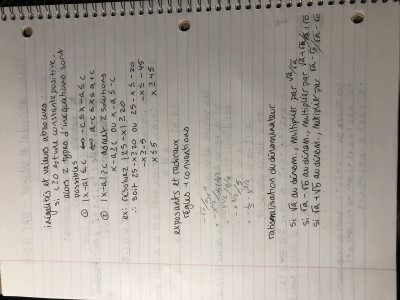 inégalités et valeurs absolues
si c≥0 est une constante positive,
alors 2 types d'inéquations sont
possibles
① |x-a| ≤ c ⇔ -c ≤ x-a ≤ c
⇔ a-c ≤ x ≤ a+c
② |x-a| ≥ c admet 2 solutions
x-a ≥ c ou x-a ≤ -c
ex: résolvez |25-x| ≥ 20
∴ soit 25-x ≥ 20 ou 25-x ≤ -20
-x ≥ -5 -x ≤ -45
x ≤ 5 x ≥ 45
exposants et radicaux
règles + conventions
rationalisation du dénominateur
si √a au dénom., multiplier par √a/√a
si √a - √b au dénom., multiplier par √a+√b/√a+√b
si √a + √b au dénom., multiplier par √a-√b/√a-√b